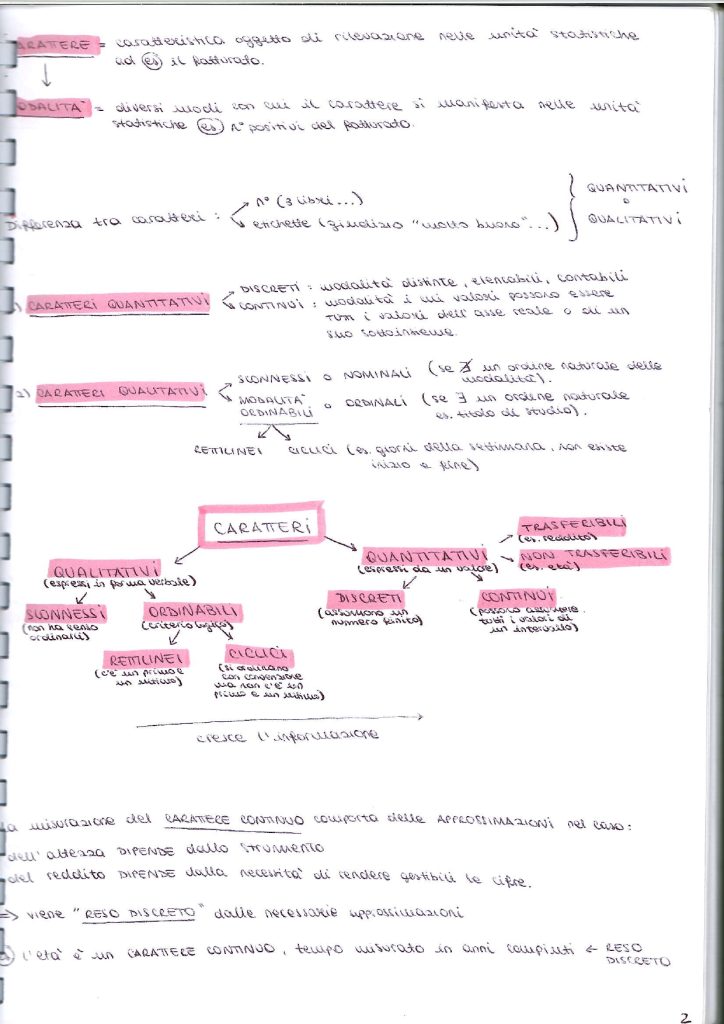 CARATTERE = caratteristica oggetto di rilevazione nelle unità statistiche
ad es il fatturato.
MODALITÀ = diversi modi con cui il carattere si manifesta nelle unità
statistiche es n° positivi del fatturato.
Differenza tra caratteri : n° (3 libri...) } QUANTITATIVI
o
etichette (giudizio "molto buono"...) QUALITATIVI
1) CARATTERI QUANTITATIVI DISCRETI : modalità distinte, elencabili, contabili
CONTINUI : modalità i cui valori possono essere
tutti i valori dell'asse reale o su un
suo sottoinsieme.
2) CARATTERI QUALITATIVI SCONNESSI o NOMINALI (se ∄ un ordine naturale delle
modalità).
MODALITÀ
ORDINABILI o ORDINALI (se ∃ un ordine naturale
es. titolo di studio).
RETTILINEI CICLICI (es. giorni della settimana, non esiste
inizio e fine)
CARATTERI
TRASFERIBILI
(es. reddito)
QUALITATIVI
(espressi in forma verbale)
QUANTITATIVI
(espressi da un valore)
NON TRASFERIBILI
(es. età)
SCONNESSI
(non ha senso
ordinarli)
ORDINABILI
(criterio logico)
DISCRETI
(assumono un
numero finito)
CONTINUI
(possono assumere
tutti i valori di
un intervallo)
RETTILINEI
(c'è un primo e
un ultimo)
CICLICI
(si ordinano
con convenzione
ma non c'è un
primo e un ultimo)
cresce l'informazione
La misurazione del CARATTERE CONTINUO comporta delle APPROSSIMAZIONI nel caso:
dell'altezza DIPENDE dallo STRUMENTO
del reddito DIPENDE dalla necessità di rendere gestibili le cifre.
=> viene "RESO DISCRETO" dalle necessarie approssimazioni
L'età è un CARATTERE CONTINUO, tempo misurato in anni compiuti ← RESO
DISCRETO
2